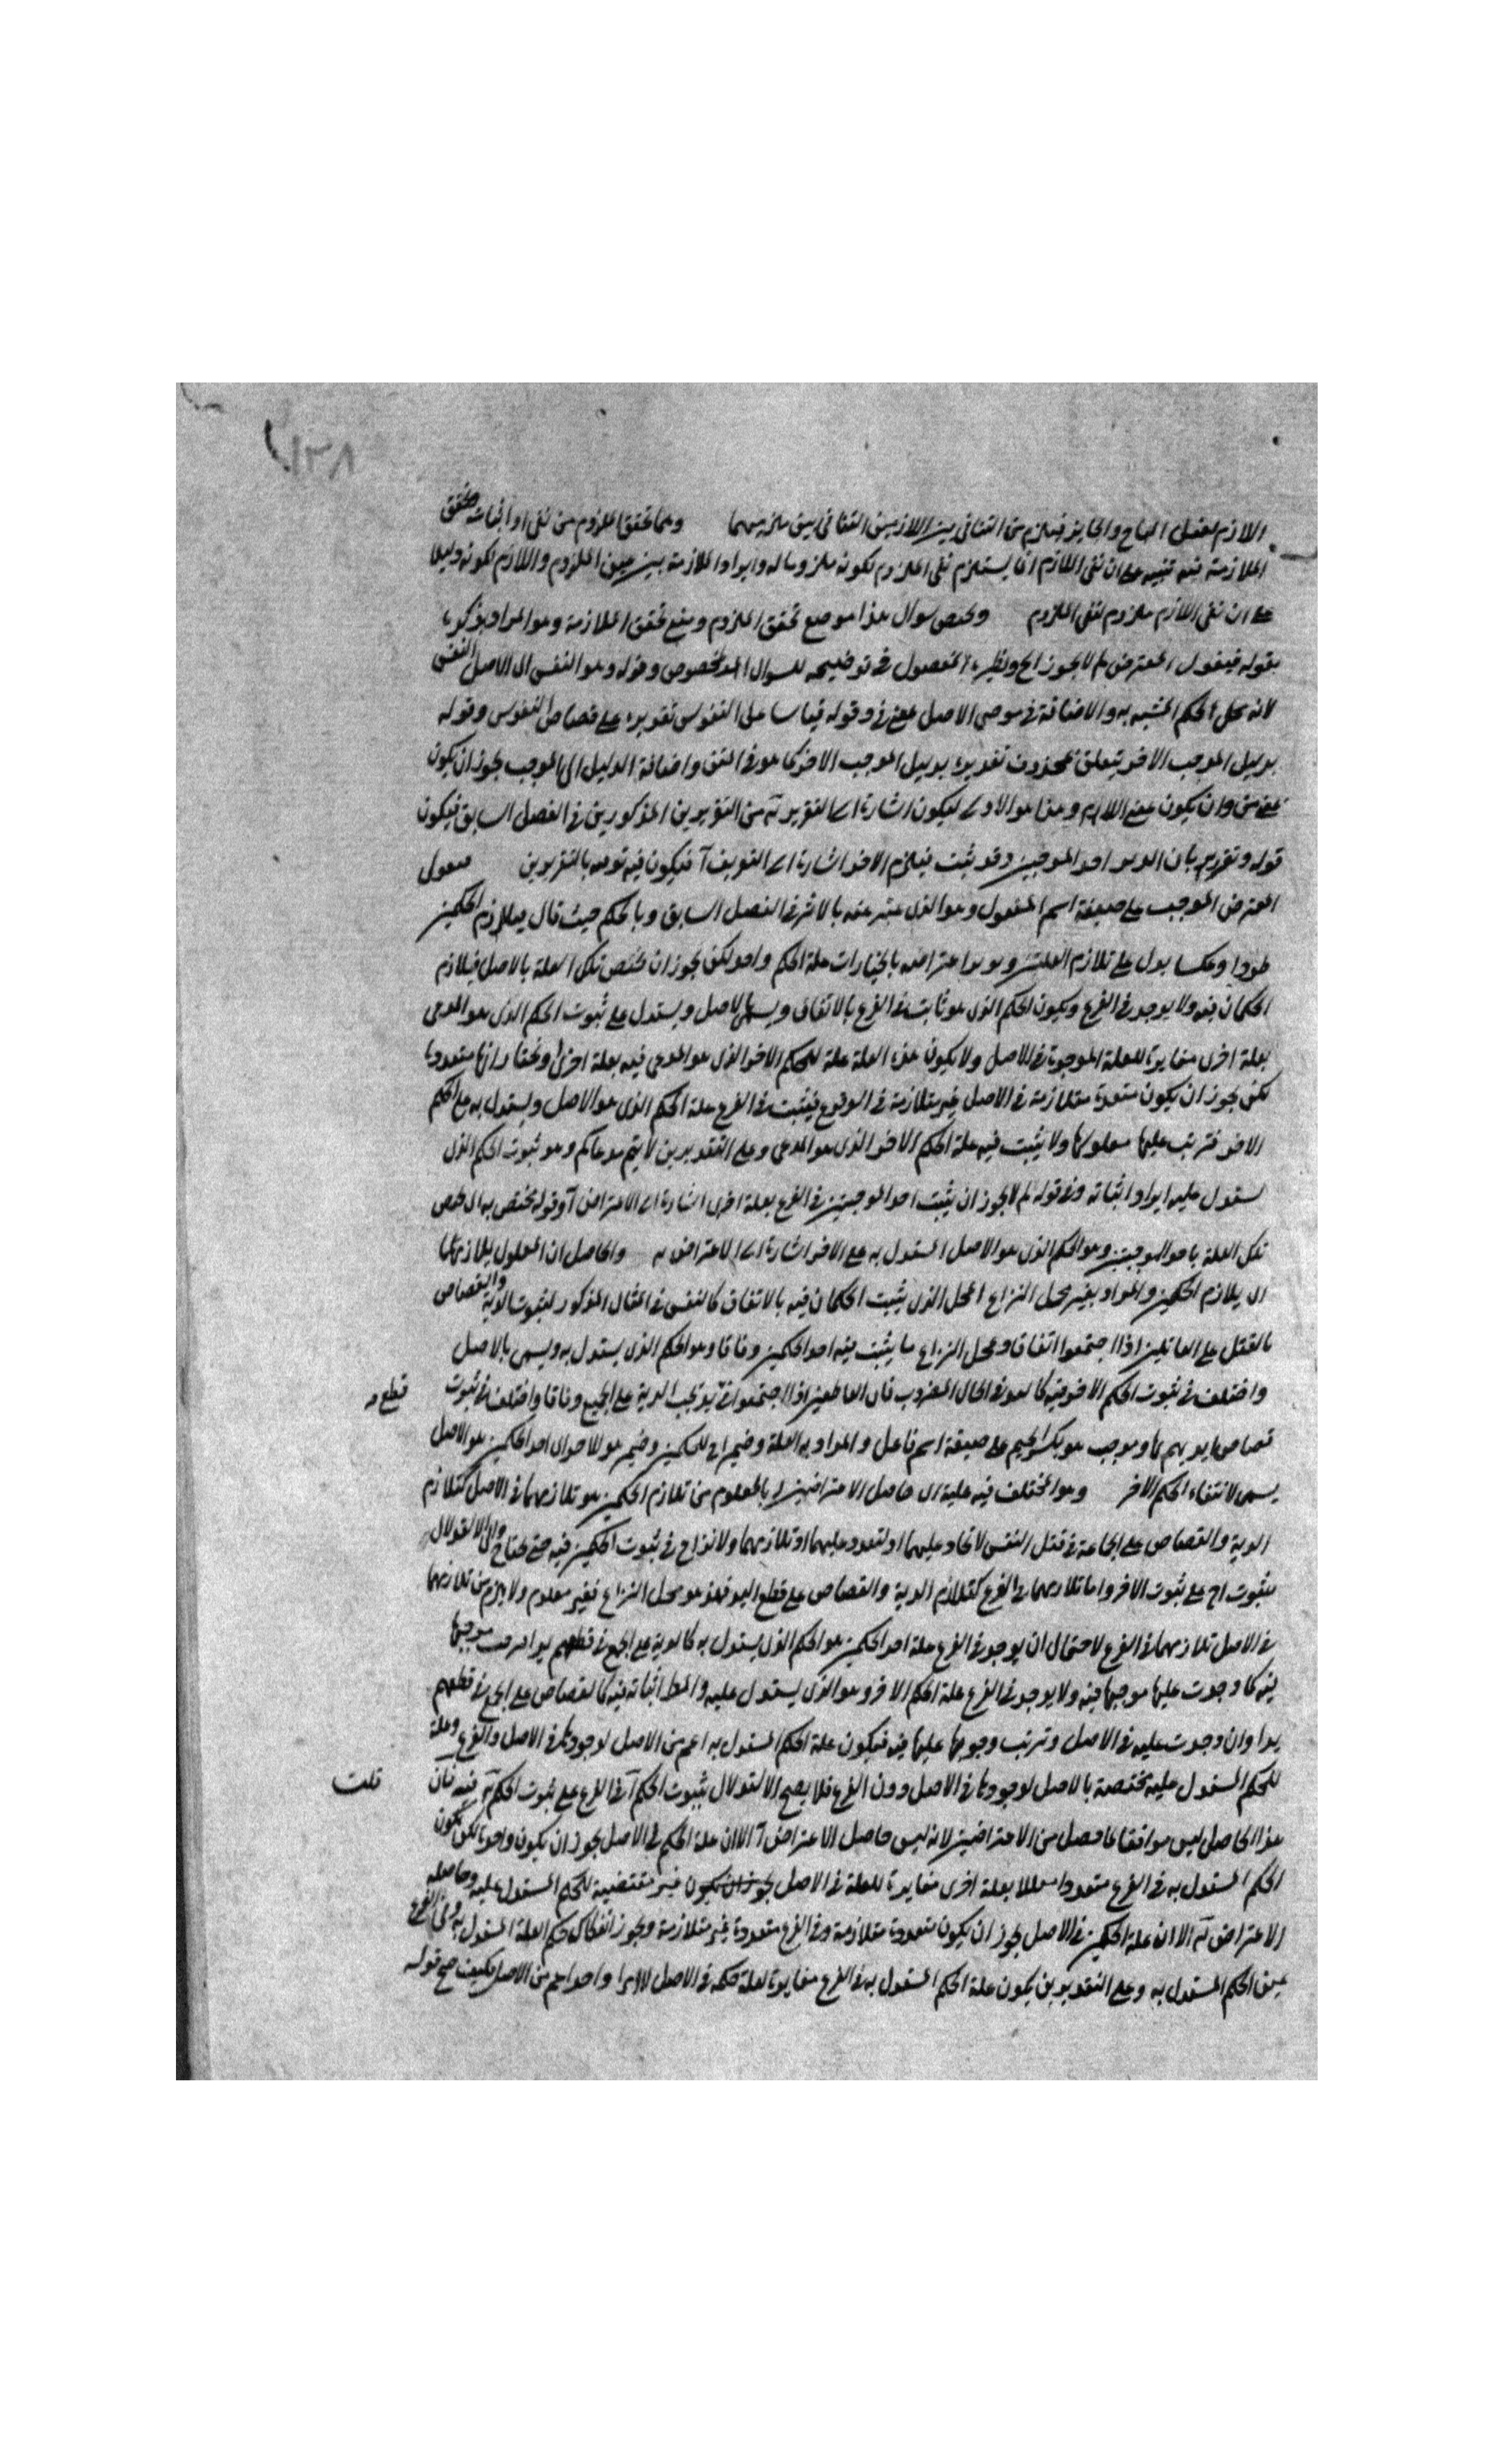 ١٣٨
اللازم لفصل المباح والجايز فيلزم من التنافى بين اللازمين التنافى بين ملزوميهما وهما تحقق الملزوم من نفى او اثبات تحقق
الملازمة فيه تنبيه على ان نفى اللازم انما يستلزم نفى الملزوم لكونه ملزوما له وايراد الملازمة بين عين الملزوم واللازم لكونه دليلا
على ان نفى اللازم ملزوم لنفى الملزوم ويختص سوال هذا موضع تحقق الملزوم ومنع تحقق الملازمة وهو المراد بذكره
بقوله فيقول المعترض لم لا يجوز الخ ونظيره المفصول فى توضيحه للسوال المخصوص وقوله وهو النفس اى الاصل النفس
لانه محل الحكم المشبه به والاضافة فى موضى الاصل بمعنى فى وقوله قياسا على النفوس تقديره على قصاص النفوس وقوله
بدليل الموجب الاخر يتعلق بمحذوف تقديره بدليل الموجب الاخر كما هو فى المتن واضافة الدليل الى الموجب يجوز ان يكون
بمعنى من وان يكون بمعنى اللام وهذا هو الاولى ليكون اشارة الى التقرير من التقريرين المذكورين فى الفصل السابق فيكون
قوله وتقريره بان احد الموجبين وقد ثبت فيلزم الاخر اشارة الى التعريف آ فيكون فيه توجه بالتقريرين فيقول
المعترض الموجب على صيغة اسم المفعول وهو الذى عبر عنه بالاثر فى الفصل السابق وبالحكم حيث قال بتلازم الحكمين
طردا وعكسا يدل على تلازم العلتين ويريد اعتراضه باختيار ان علة الحكم واحد لكن يجوز ان يختص تلك العلة بالاصل فيلازم
الحكمان فيه ولا يوجد فى الفرع ويكون الحكم الذى هو ثابت فى الفرع بالاتفاق ويسمى الاصل ويستدل على ثبوت الحكم الذى هو المدعى
بعلة اخرى مغايرة للعلة الموجودة فى الاصل ولا يكون هذه العلة علة للحكم الاخر الذى هو المدعى فيه بعلة اخرى ونختار انها متعددة
لكن يجوز ان يكون متعددة متلازمة فى الاصل غير متلازمة فى الوقوع فيثبت فى الفرع علة الحكم الذى هو الاصل ويستدل به مع الحكم
الاخر فترتب عليها معلولها ولا يثبت فيه علة الحكم الاخر الذى هو المدعى وعلى التقديرين لا يتم مدعاكم وهو ثبوت الحكم الذى
يستدل عليه ايراد اثباته وفى قوله لم لا يجوز ان يثبت احد الموجبين فى الفرع بعلة اخرى اشارة الى الاعتراض آ وقوله يختص به اى يختص
تلك العلة باحد الموجبين وهو الحكم الذى هو الاصل المستدل به على الاخر اشارة الى الاعتراض والحاصل ان المعلول يلازمهما
اى يلازم الحكمين والمراد بغير محل النزاع المحل الذى يثبت الحكمان فيه بالاتفاق كالنفس فى المثال المذكور لثبوت الدية والقصاص
بالقتل على العاقلين اذا اجتمعوا اتفاقا ومحل النزاع ما يثبت فيه احد الحكمين وفاقا وهو الحكم الذى يستدل به ويسمى بالاصل
واختلف فى ثبوت الحكم الاخر فيه كاليد فى الحال المضروب فان القاطعين اذا اجتمعوا فى يد تجب الدية على الجميع وفاقا واختلف فى ثبوت قطع
قصاص ايديهم بها وموجب هو بكسر الجيم على صيغة اسم فاعل والمراد به العلة وضميراح للحكمين وضمير هو للاحد اى احد الحكمين هو الاصل
يسمى لانتفاء الحكم الاخر وهو المختلف فيه عليه اى حاصل الاعتراضين ان المعلوم من تلازم الحكمين هو تلازمهما فى الاصل كتلازم
الدية والقصاص على الجماعة فى قتل النفس لاتحاد عليهما او لتعدد عليهما وتلازمهما ولا نزاع فى ثبوت الحكمين فيه حتى يحتاج الى الاستدلال
بثبوت اح على ثبوت الاخر واما تلازمهما فى الفرع كتلازم الدية والقصاص على قطع اليد فهو محل النزاع فغير معلوم ولا يلزم من تلازمهما
فى الاصل تلازمهما فى الفرع لاحتمال ان يوجد فى الفرع علة احد الحكمين هو الحكم الذى يستدل به كالدية على الجمع فى قطعهم يدا وترتب موجبها
فيه كما وجدت عليها موجبها فيه ولا يوجد فى الفرع علة الحكم الاخر وهو الذى يستدل عليه والمط اثباته فيه كالقصاص على الجمع فى قطعهم
يدا وان وجدت عليه فى الاصل وترتب وجوبها عليها فيه فيكون علة الحكم المستدل به اعم من الاصل لوجودها فى الاصل والفرع وعلة
للحكم المستدل عليه مختصة بالاصل لوجودها فى الاصل دون الفرع فلا يصح الاستدلال بثبوت الحكم آ فى الفرع على ثبوت الحكم فيه فان قلت
هذا الحاصل ليس موافقا لما حصل من الاعتراضين لانه ليس حاصل الاعتراض آ الا ان علة الحكم فى الاصل يجوز ان يكون واحدة لكن يكون
الحكم المستدل به فى الفرع متعددا معللا بعلة اخرى مغايرة للعلة فى الاصل يجوز ان يكون غير مقتضية للحكم المستدل عليه وحاصله
الاعتراض الا ان علة الحكمين فى الاصل يجوز ان يكون متعددة متلازمة وفى الفرع متعددة غير متلازمة ويجوز انفكاك حكم العلة المستدل به فى الفرع
عين الحكم المستدل به وعلى التقديرين يكون علة الحكم المستدل به فى الفرع مغايرة لعلة حكمه فى الاصل لا امرا واحدا اعم من الاصل فكيف صح قوله